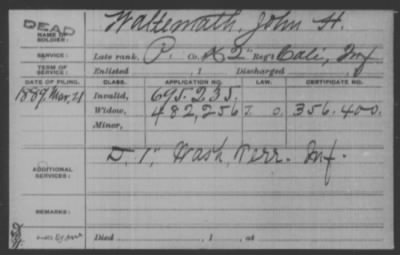 DEAD
NAME OF SOLDIER: Waltemath, John H.
SERVICE: Late rank, P. Co. K 2" Reg't Cali, Inf
TERM OF SERVICE: Enlisted 1 Discharged
DATE OF FILING. CLASS. APPLICATION NO. LAW. CERTIFICATE NO.
1889 Mar. 21 Invalid, 695.235.
Widow, 482,256 O. 356.400.
Minor,
D, 1", Wash, Terr. Inf.
ADDITIONAL SERVICES:
REMARKS:
Died , 1 , at